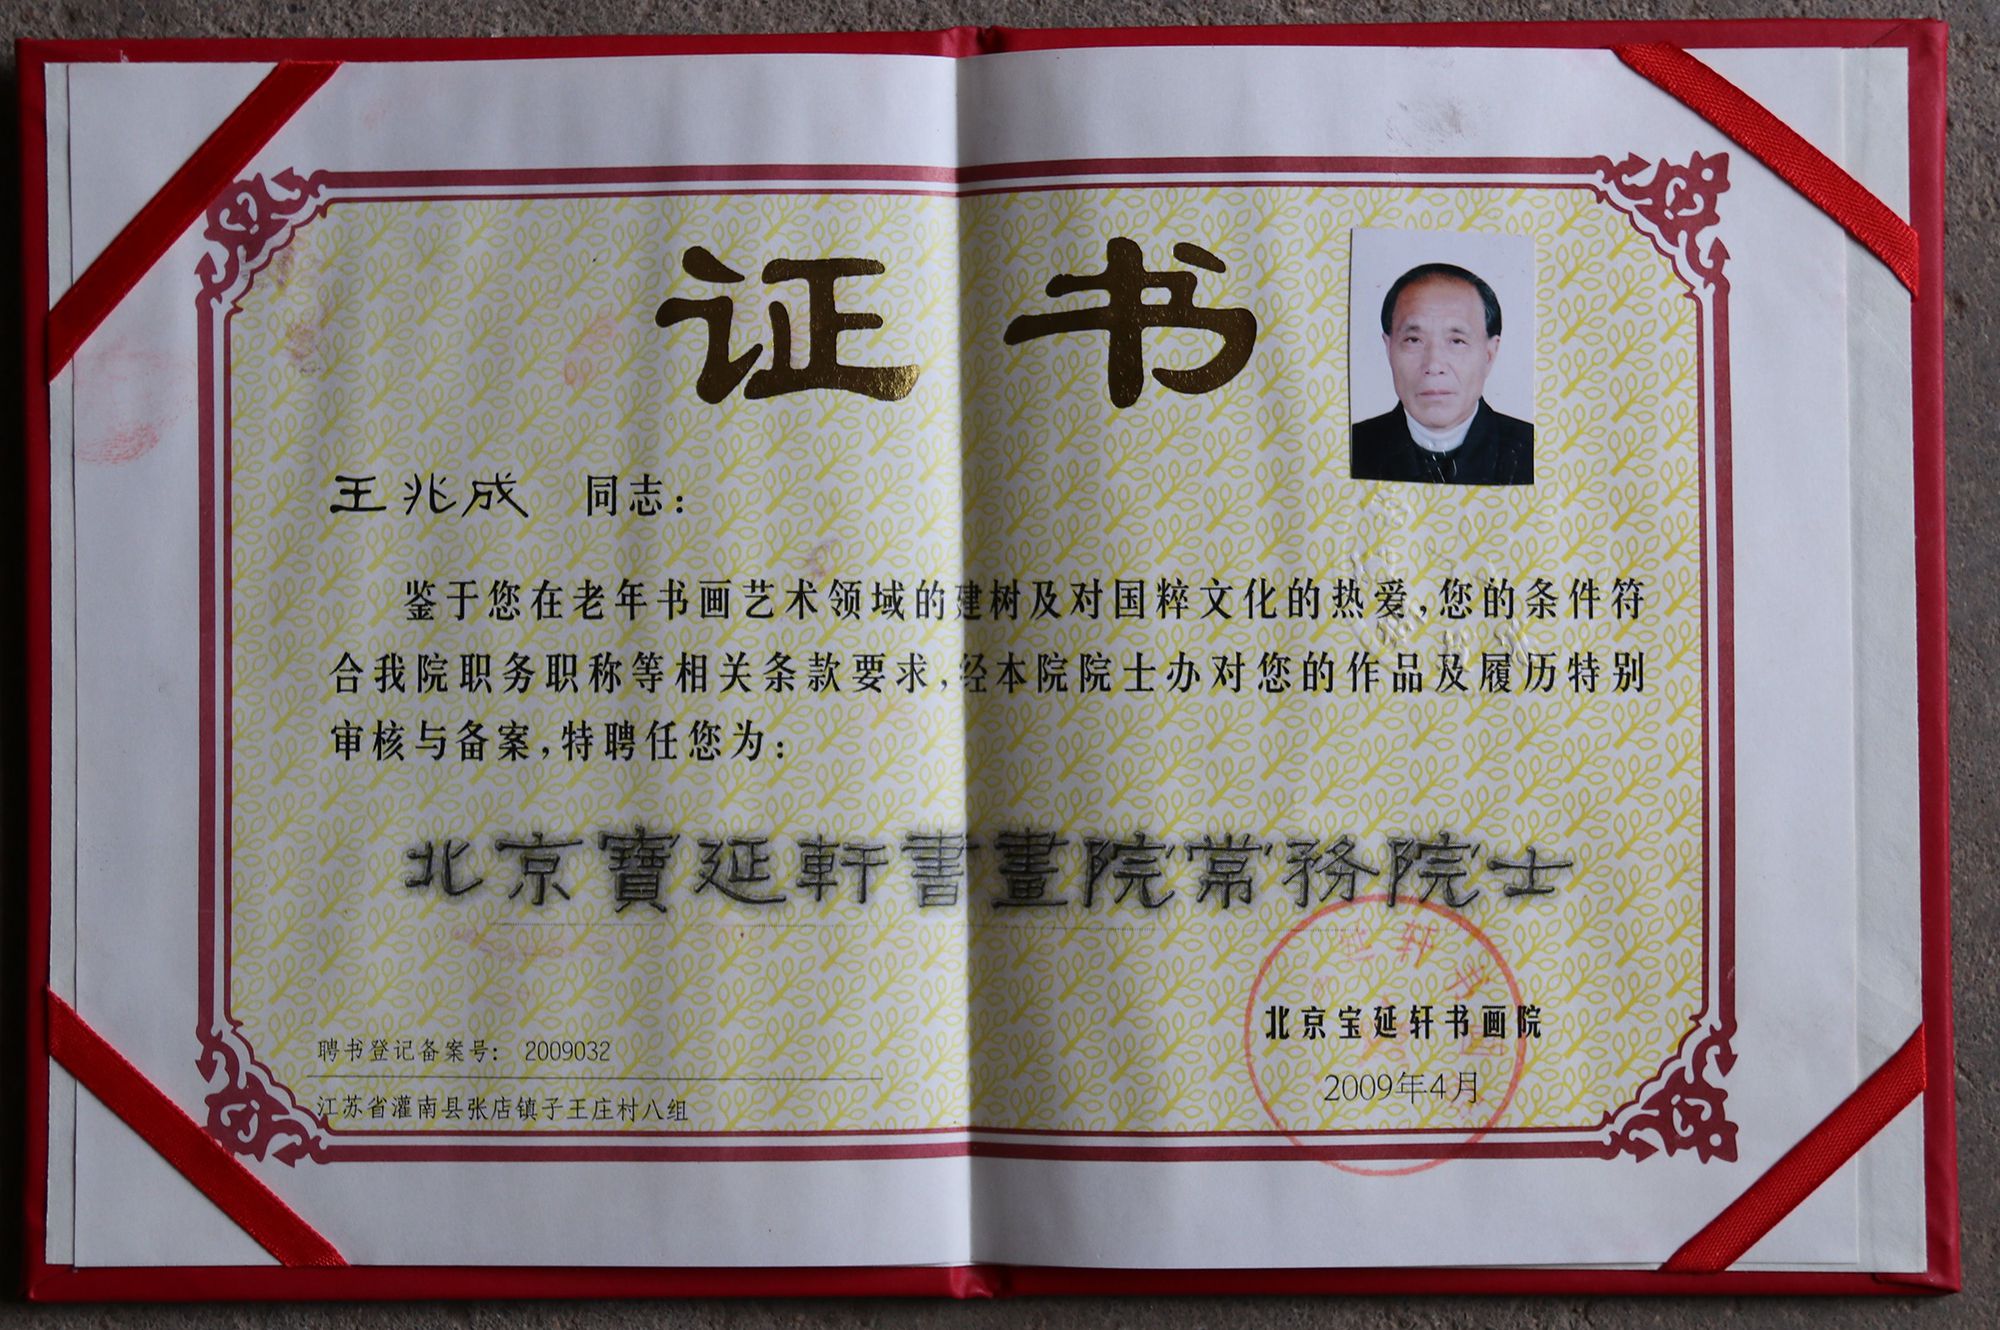 证书
王兆成 同志：
鉴于您在老年书画艺术领域的建树及对国粹文化的热爱，您的条件符
合我院职务职称等相关条款要求，经本院院士办对您的作品及履历特别
审核与备案，特聘任您为：
北京寶延軒書畫院常務院士
北京宝延轩书画院
2009年4月
聘书登记备案号： 2009032
江苏省灌南县张店镇子王庄村八组